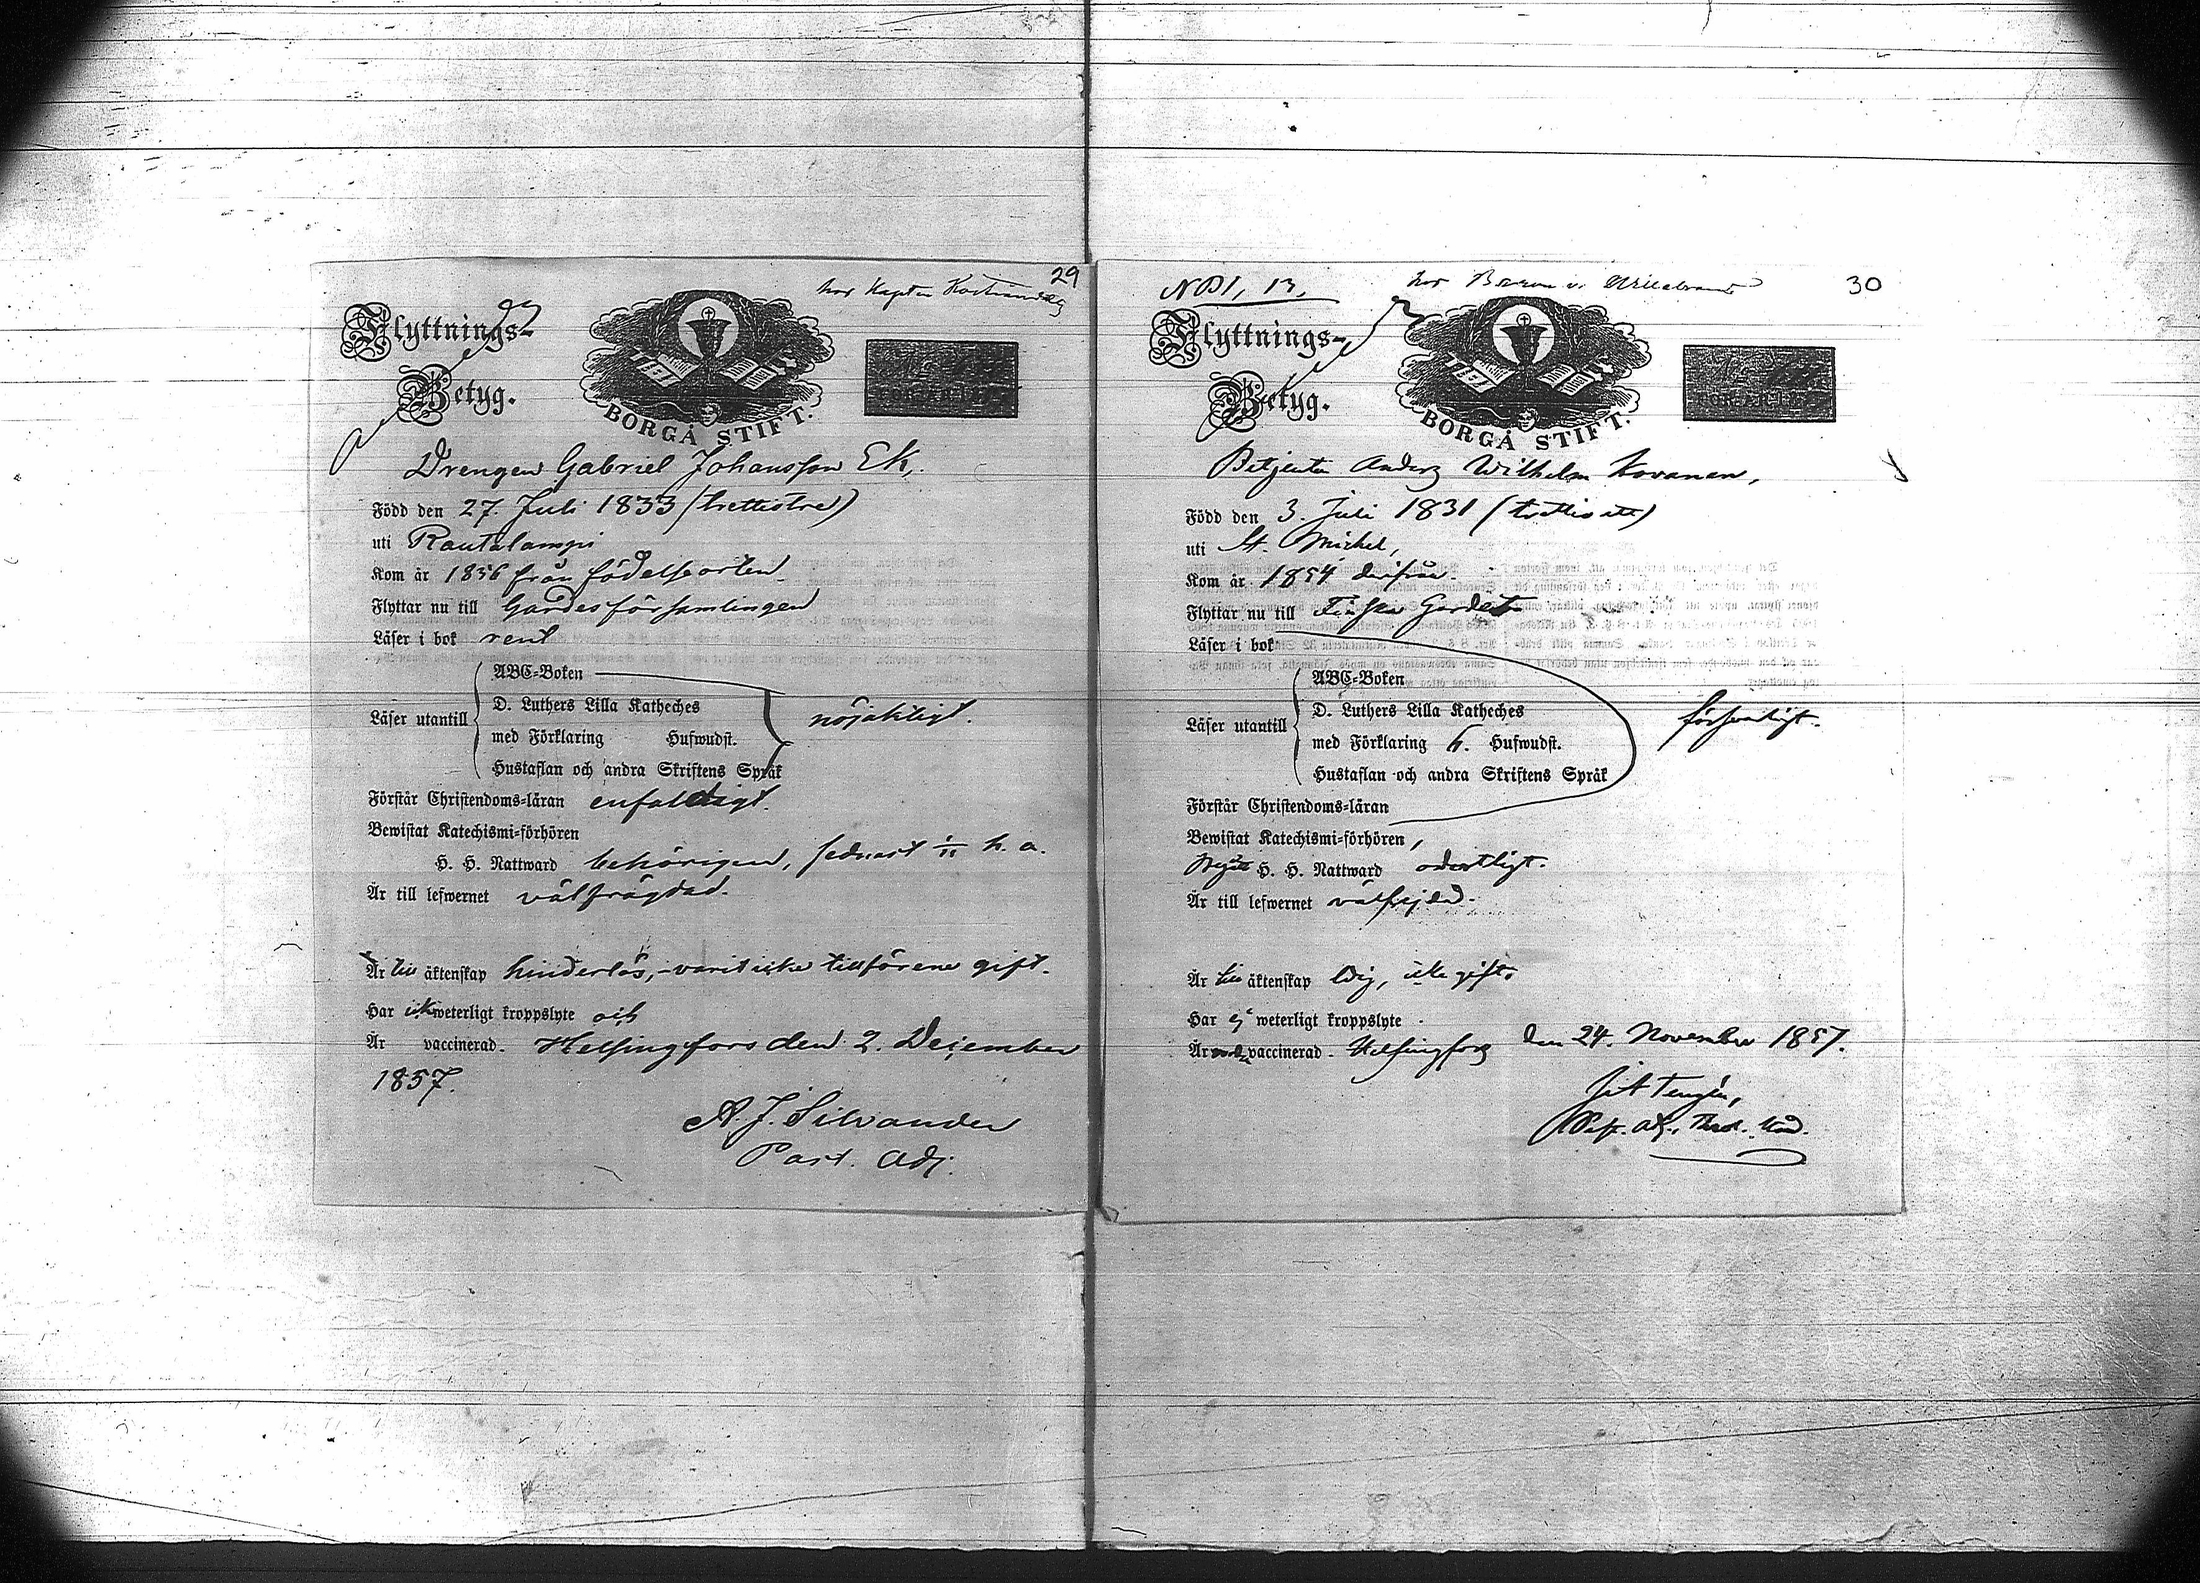 29
hos Kapten
Flyttnings-
Betyg.
BORGÅ STIFT.
Drengen Gabriel Johansson Ek,
Född den 27. Juli 1833 (trettiotre)
uti Rautalampi
Kom år 1856 från födelseorten
Flyttar nu till Gardesförsamlingen
Läser i bok rent
ABC-Boken
D. Luthers Lilla Katheches
Läser utantill nöjaktigt.
med Förklaring Hufwudst.
Hustaflan och andra Skriftens Språk
Förstår Christendoms-läran enfaldigt.
Bewistat Katechismi-förhören
H. H. Nattward behörigen, sednast 1/11 h. a.
Är till lefwernet välfrägdad.
Är till äktenskap hinderlös, varit icke tillförene gift.
Har ick weterligt kroppslyte och
Är vaccinerad. Helsingfors den 2. December
1857.
A. J. Silvander
Past. Adj.
30
hos Baron v. Willebrand
Flyttnings-
Betyg.
BORGÅ STIFT.
Betjenten Anders Wilhelm Kovanen,
Född den 3. Juli 1831 (trettioett)
uti St. Michel,
Kom år 1854 derifrån.
Flyttar nu till Finska Gardet
Läser i bok
ABC-Boken
D. Luthers Lilla Katheches
Läser utantill försvarligt.
med Förklaring 6. Hufwudst.
Hustaflan och andra Skriftens Språk
Förstår Christendoms-läran
Bewistat Katechismi-förhören,
H. H. Nattward ordentligt.
Är till lefwernet välfrejdad.
Är till äktenskap ledig, icke gift.
Har ej weterligt kroppslyte.
Är vaccinerad. Helsingfors den 24. November 1857.